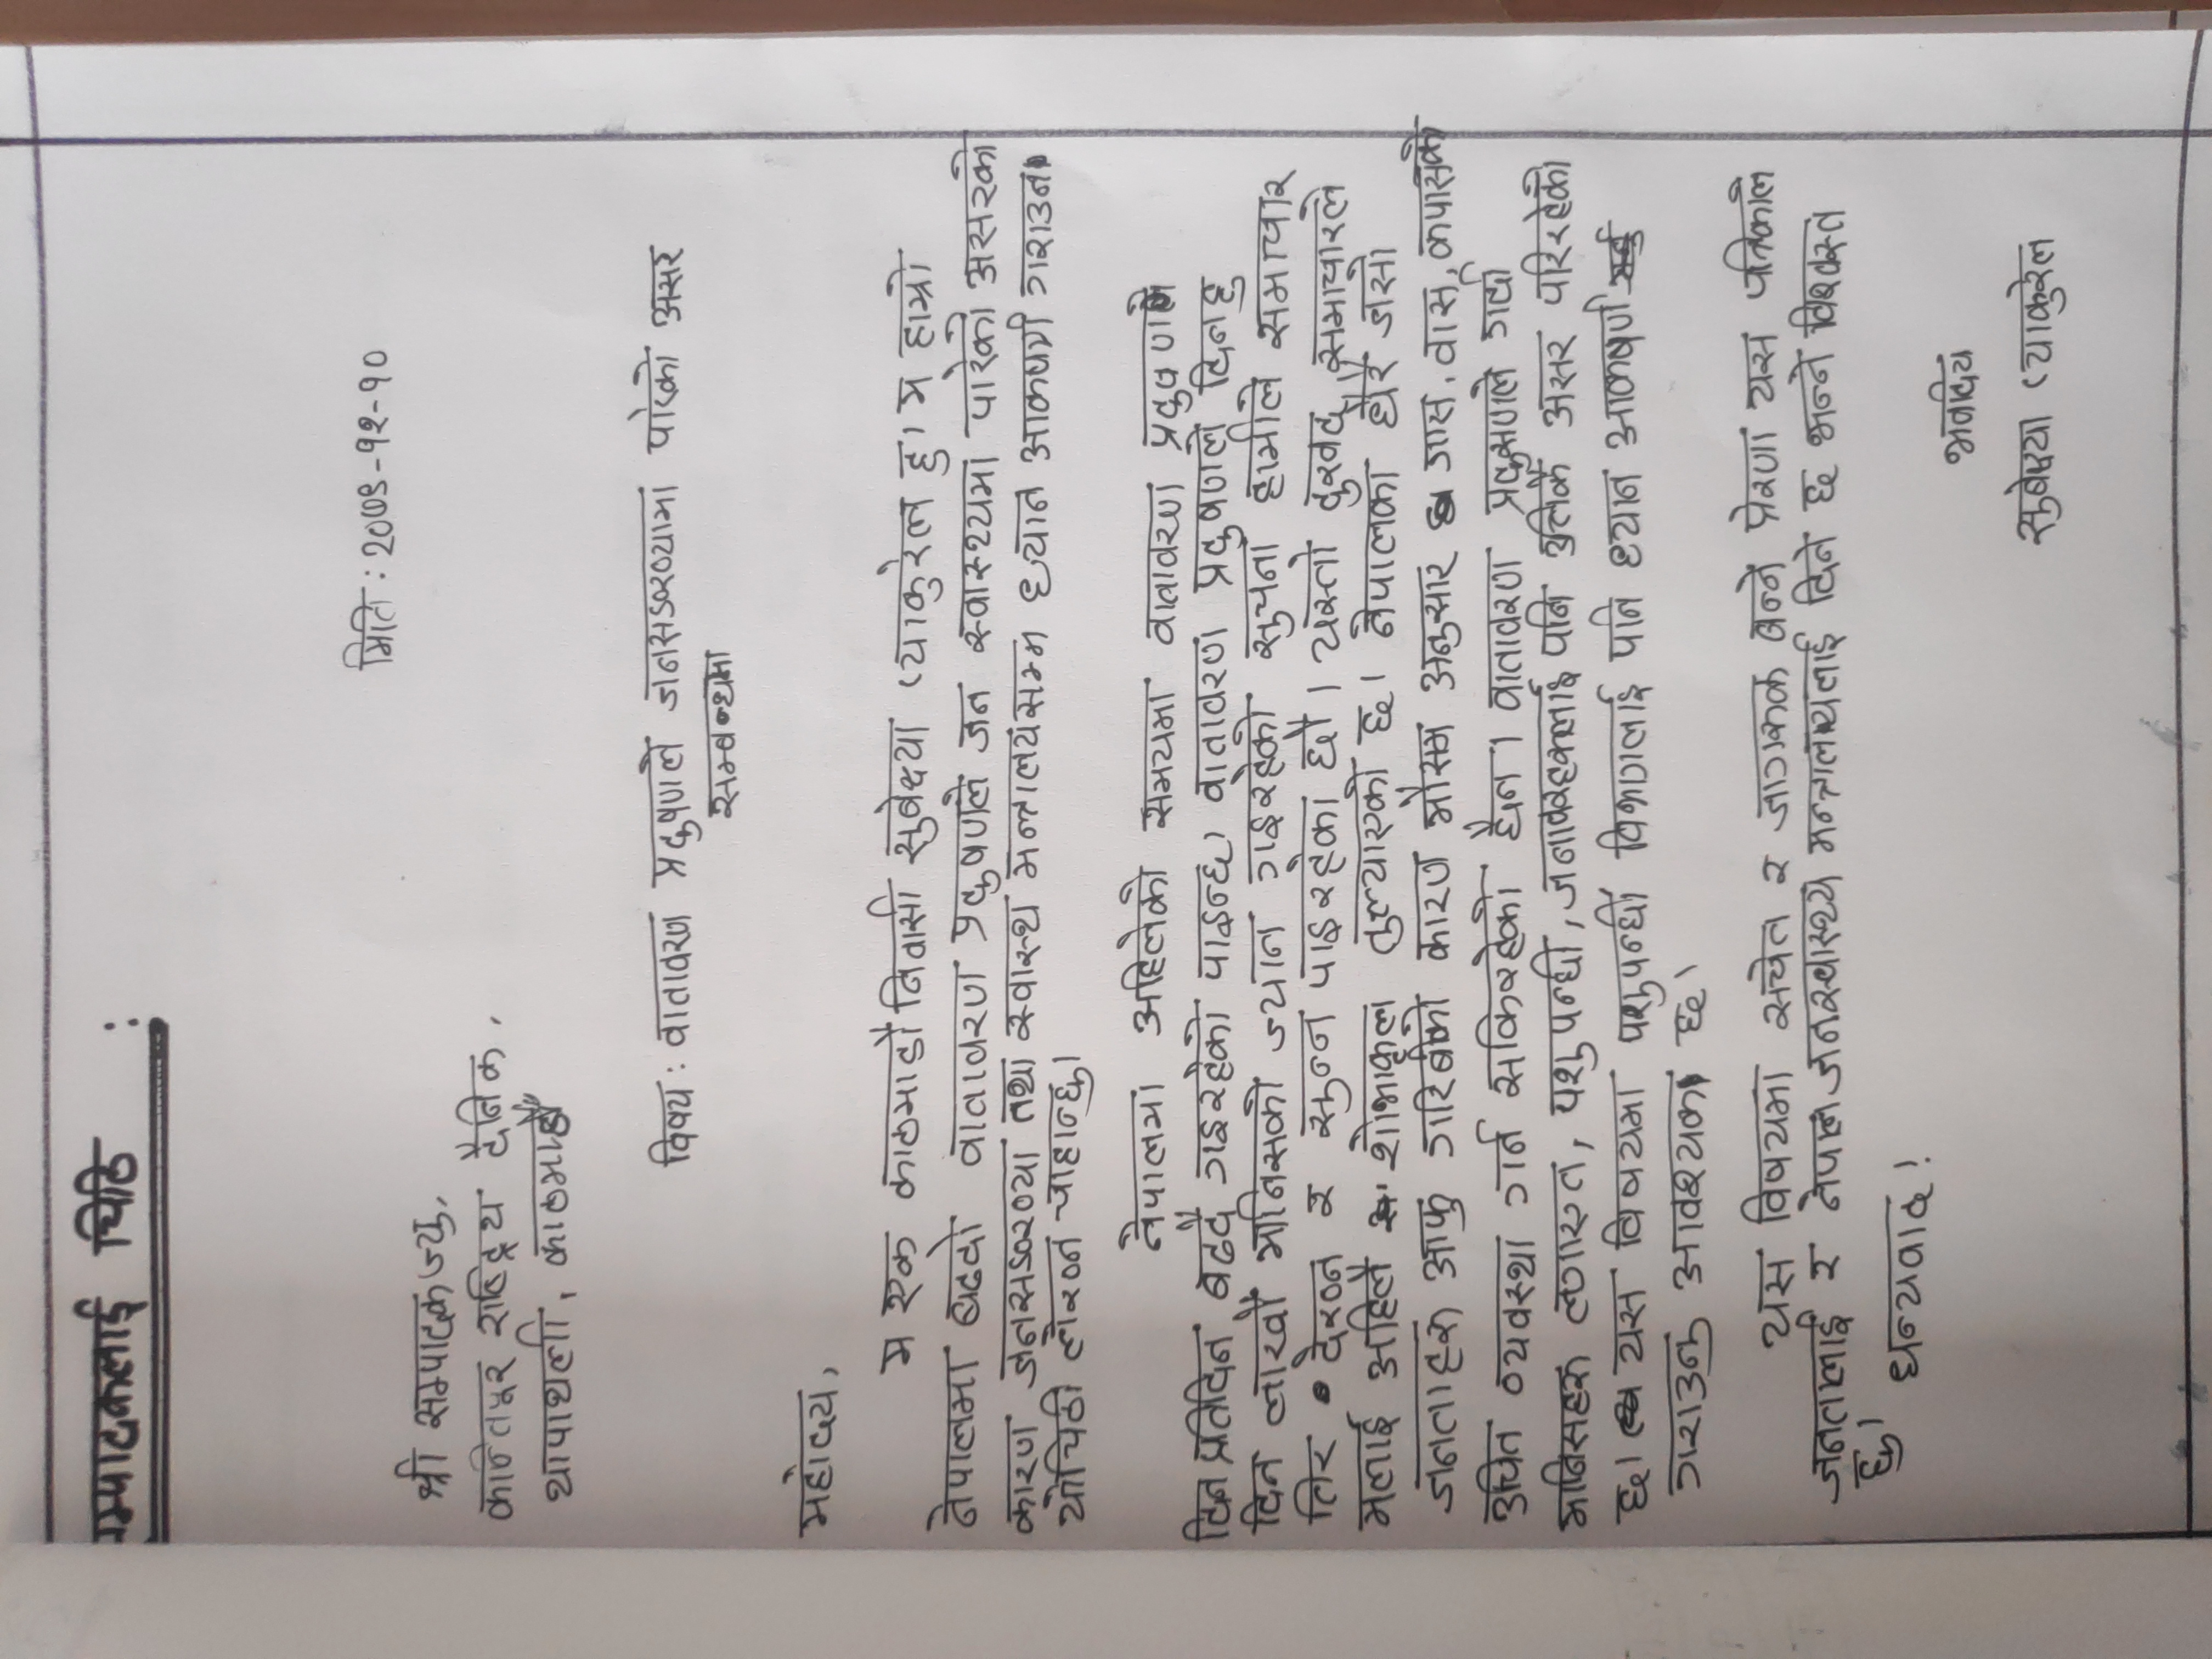 म्पादकलाई चिठि :
मिति : २०७९-१२-१०
श्री सम्पादक ज्यु,
कान्तिपूर राष्ट्रिय दैनिक,
थापाथली, काठमाडौँ
विषय : वातावरण प्रदुषणले जनसङख्यामा पारेको असर
सम्बन्धमा
महोदय,
म एक काठमाडौ निवासी सुबेक्ष्या प्याकुरेल हु। म हाम्रो
नेपालमा बढ्दो वातावरण प्रदुषणले जन स्वास्थ्यमा पारेको असरको
कारण जनसङख्या तथा स्वास्थ मन्त्रालयसम्म ध्यान आकषर्ण गराउन
यो चिठी लेख्न चाहान्छु।
नेपालमा अहिलेको समयमा वातावरण प्रदुषणले
दिन प्रतिदिन बढदै गइरहेको पाइन्छ। वातावरण प्रदुषणले दिनहु
दिन लाखौ मानिसको ज्यान गइरहेको सुचना हामीले समाचार
तिर देख्न र सुन्न पाइरहेका छौ। यस्तो दुखद समाचारले
मलाई अहिले शोभाकूल तुल्याएको छ। नेपालका धेरै जसो
जनताहरु आफु गरिबीको कारण मौसम अनुसार गास, वास, कपासको
उचित व्यवस्था गर्न सकिरहेको छैन। वातावरण प्रदुसणले गर्दा
मानिसहरु लगाएत, पशुपन्छी, जनावरहरुलाई पनि उत्तिकै असर परिरहेको
छ। यस विषयमा पशुपन्छी विभागलाई पनि ध्यान आकषर्ण
गराउनु आवश्यक छ।
यस विषयमा सचेत र जागरुक बन्ने प्रेरणा यस पत्रिकाले
जनतालाई र नेपाल जनस्वास्थ्य मन्त्रालयलाई दिने छ भन्ने विश्वस्त
छु।
धन्यवाद !
भवदिय
सुबेक्ष्या प्याकुरेल